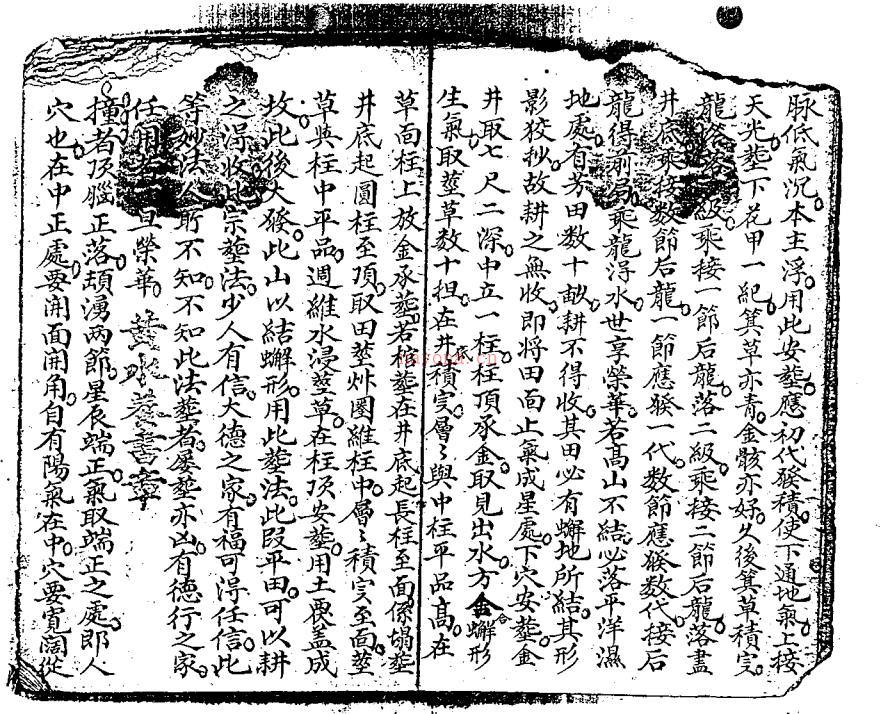 脉低氣沉本主浮用此安塟應初代發積使下通地氣上接
天光塟下花甲一紀箕草亦青金骸亦好久後箕草積实
龍格落一級乘接一節后龍落二級乘接二節后龍落盡
井底乘接数節后龍一節應發一代数節應發数代接后
龍得前局乘龍淂水世享榮華若髙山不結必落平洋濕
地處有芳田数十畝耕不得收其田必有蠏地所結其形
影狡抄故耕之無收即将田面止氣成星處下穴安塟金
井取七尺二深中立一柱柱頂承金取見出水方金蠏形
生氣取塟草数十担在井底積实層々與中柱平品髙在
草面柱上放金承塟若棺塟在井底起長柱至面係塌塟
井底起圓柱至頂取田塟艸圂維柱中層々積实至面塟
草與柱中平品週維水浸塟草在柱顶安塟用土畏盖成
坟此後大發此山以結蠏形用此塟法此段平田可以耕
之淂收此宗塟法少人有信大德之家有福可淂任信此
等妙法人所不知不知此法塟者屡塟亦凶有德行之家
任用 一旦榮華 書章
撞者頂腦正落頏湧两節星辰端正氣取端正之處即人
穴也在中正處要開面開角自有陽氣在中穴要寬闊從